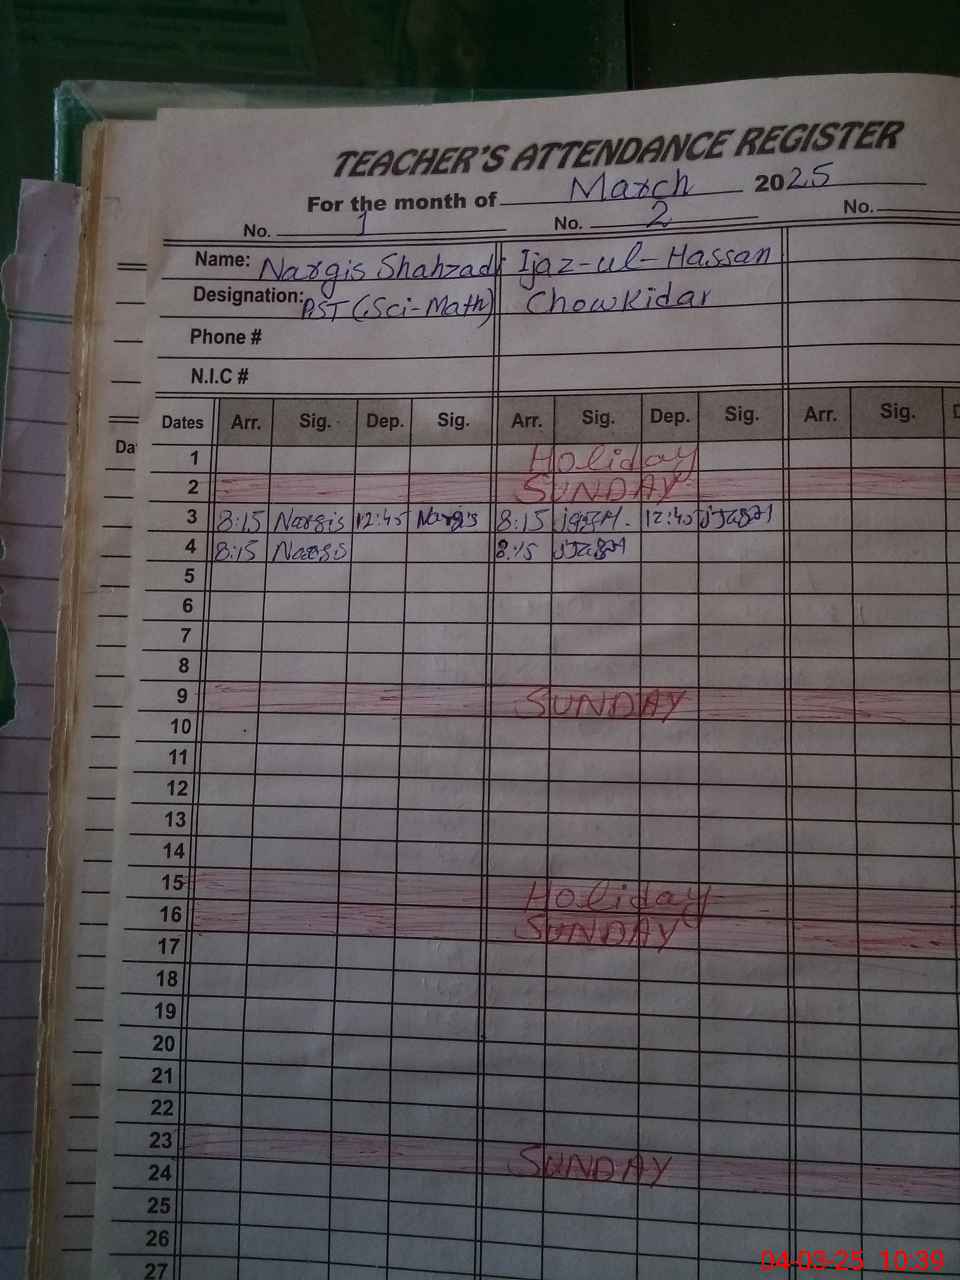 TEACHER'S ATTENDANCE REGISTER
For the month of March 2025
No. 1 No. 2 No.
Name: Nargis Shahzadi Ijaz-ul-Hassan
Designation: PST (Sci-Math) Chowkidar
Phone #
N.I.C #
Dates Arr. Sig. Dep. Sig. Arr. Sig. Dep. Sig. Arr. Sig. D
Da
1 Holiday
2 SUNDAY
3 8:15 Nargis 12:45 Nargis 8:15 12:45
4 8:15 Nargis 8:15
5
6
7
8
9 SUNDAY
10
11
12
13
14
15 Holiday
16 SUNDAY
17
18
19
20
21
22
23 SUNDAY
24
25
26
27
04-03-25 10:39